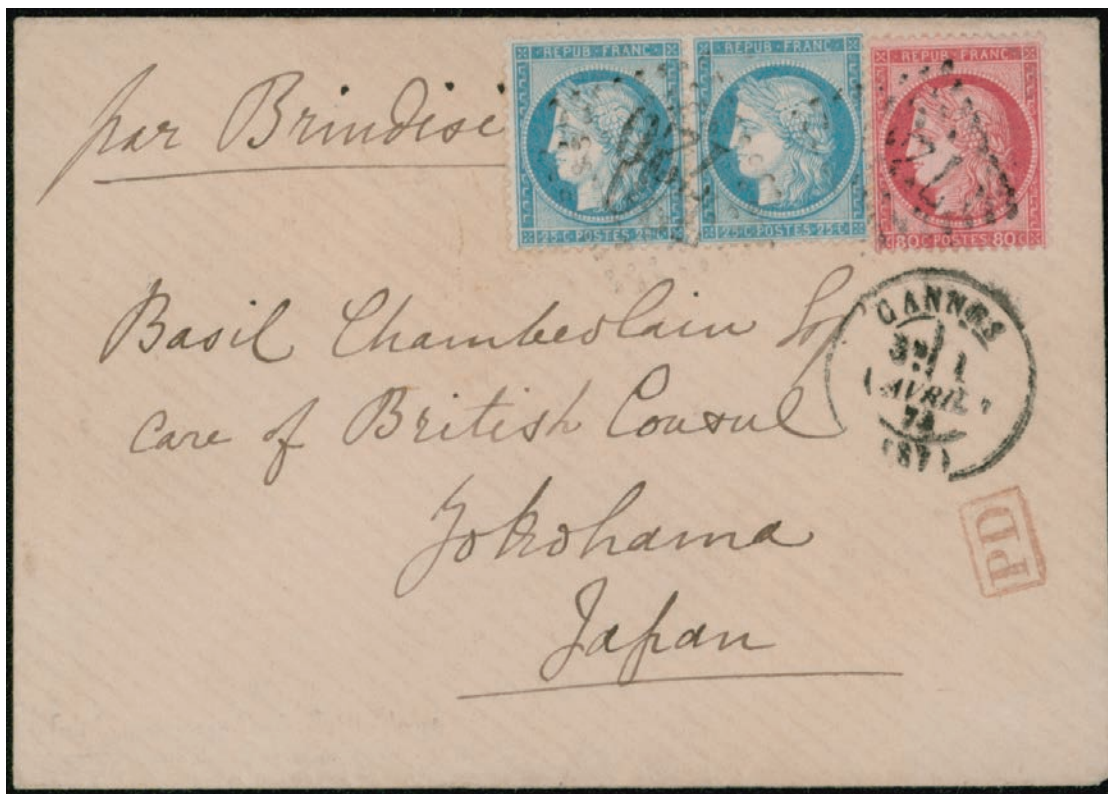 REPUB·FRANC·
25·C·POSTES·25·C·
REPUB·FRANC·
25·C·POSTES·25·C·
REPUB·FRANC·
80·C·POSTES·80·C
par Brindisi
Basil Chamberlain Esq
care of British Consul
Yokohama
Japan
CANNES
AVRIL
(87)
PD